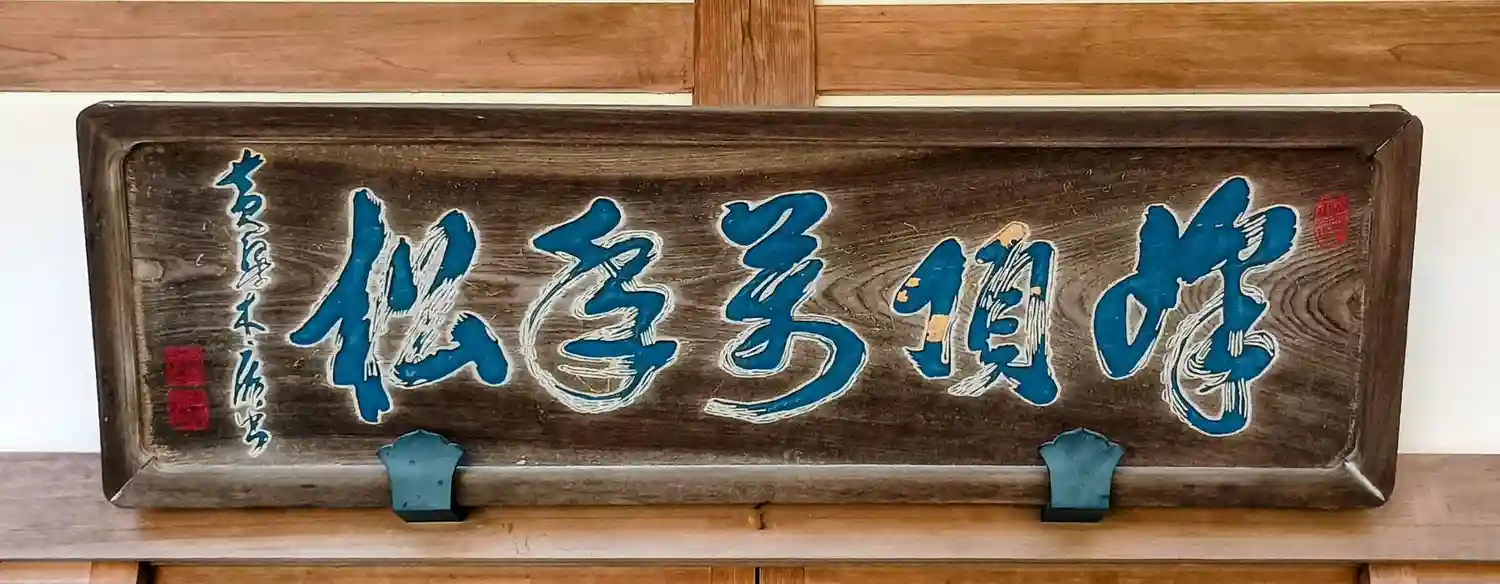 峰頂萬年松
黄檗木庵書